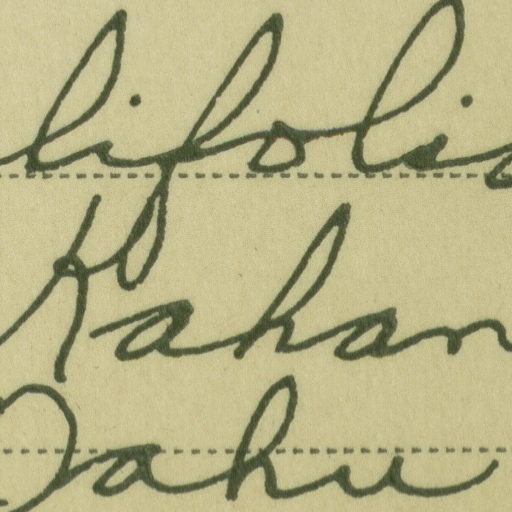 lifolia
Kahan
Oahu